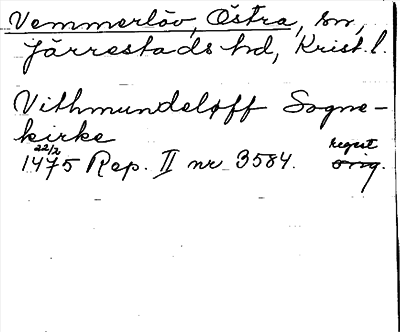 Vemmerlöv, Östra, sn,
Järrestads hd, Krist. l.
Vithmundeloff Sogne-
kirke
22/2 1475 Rep. II nr 3584. regest orig.